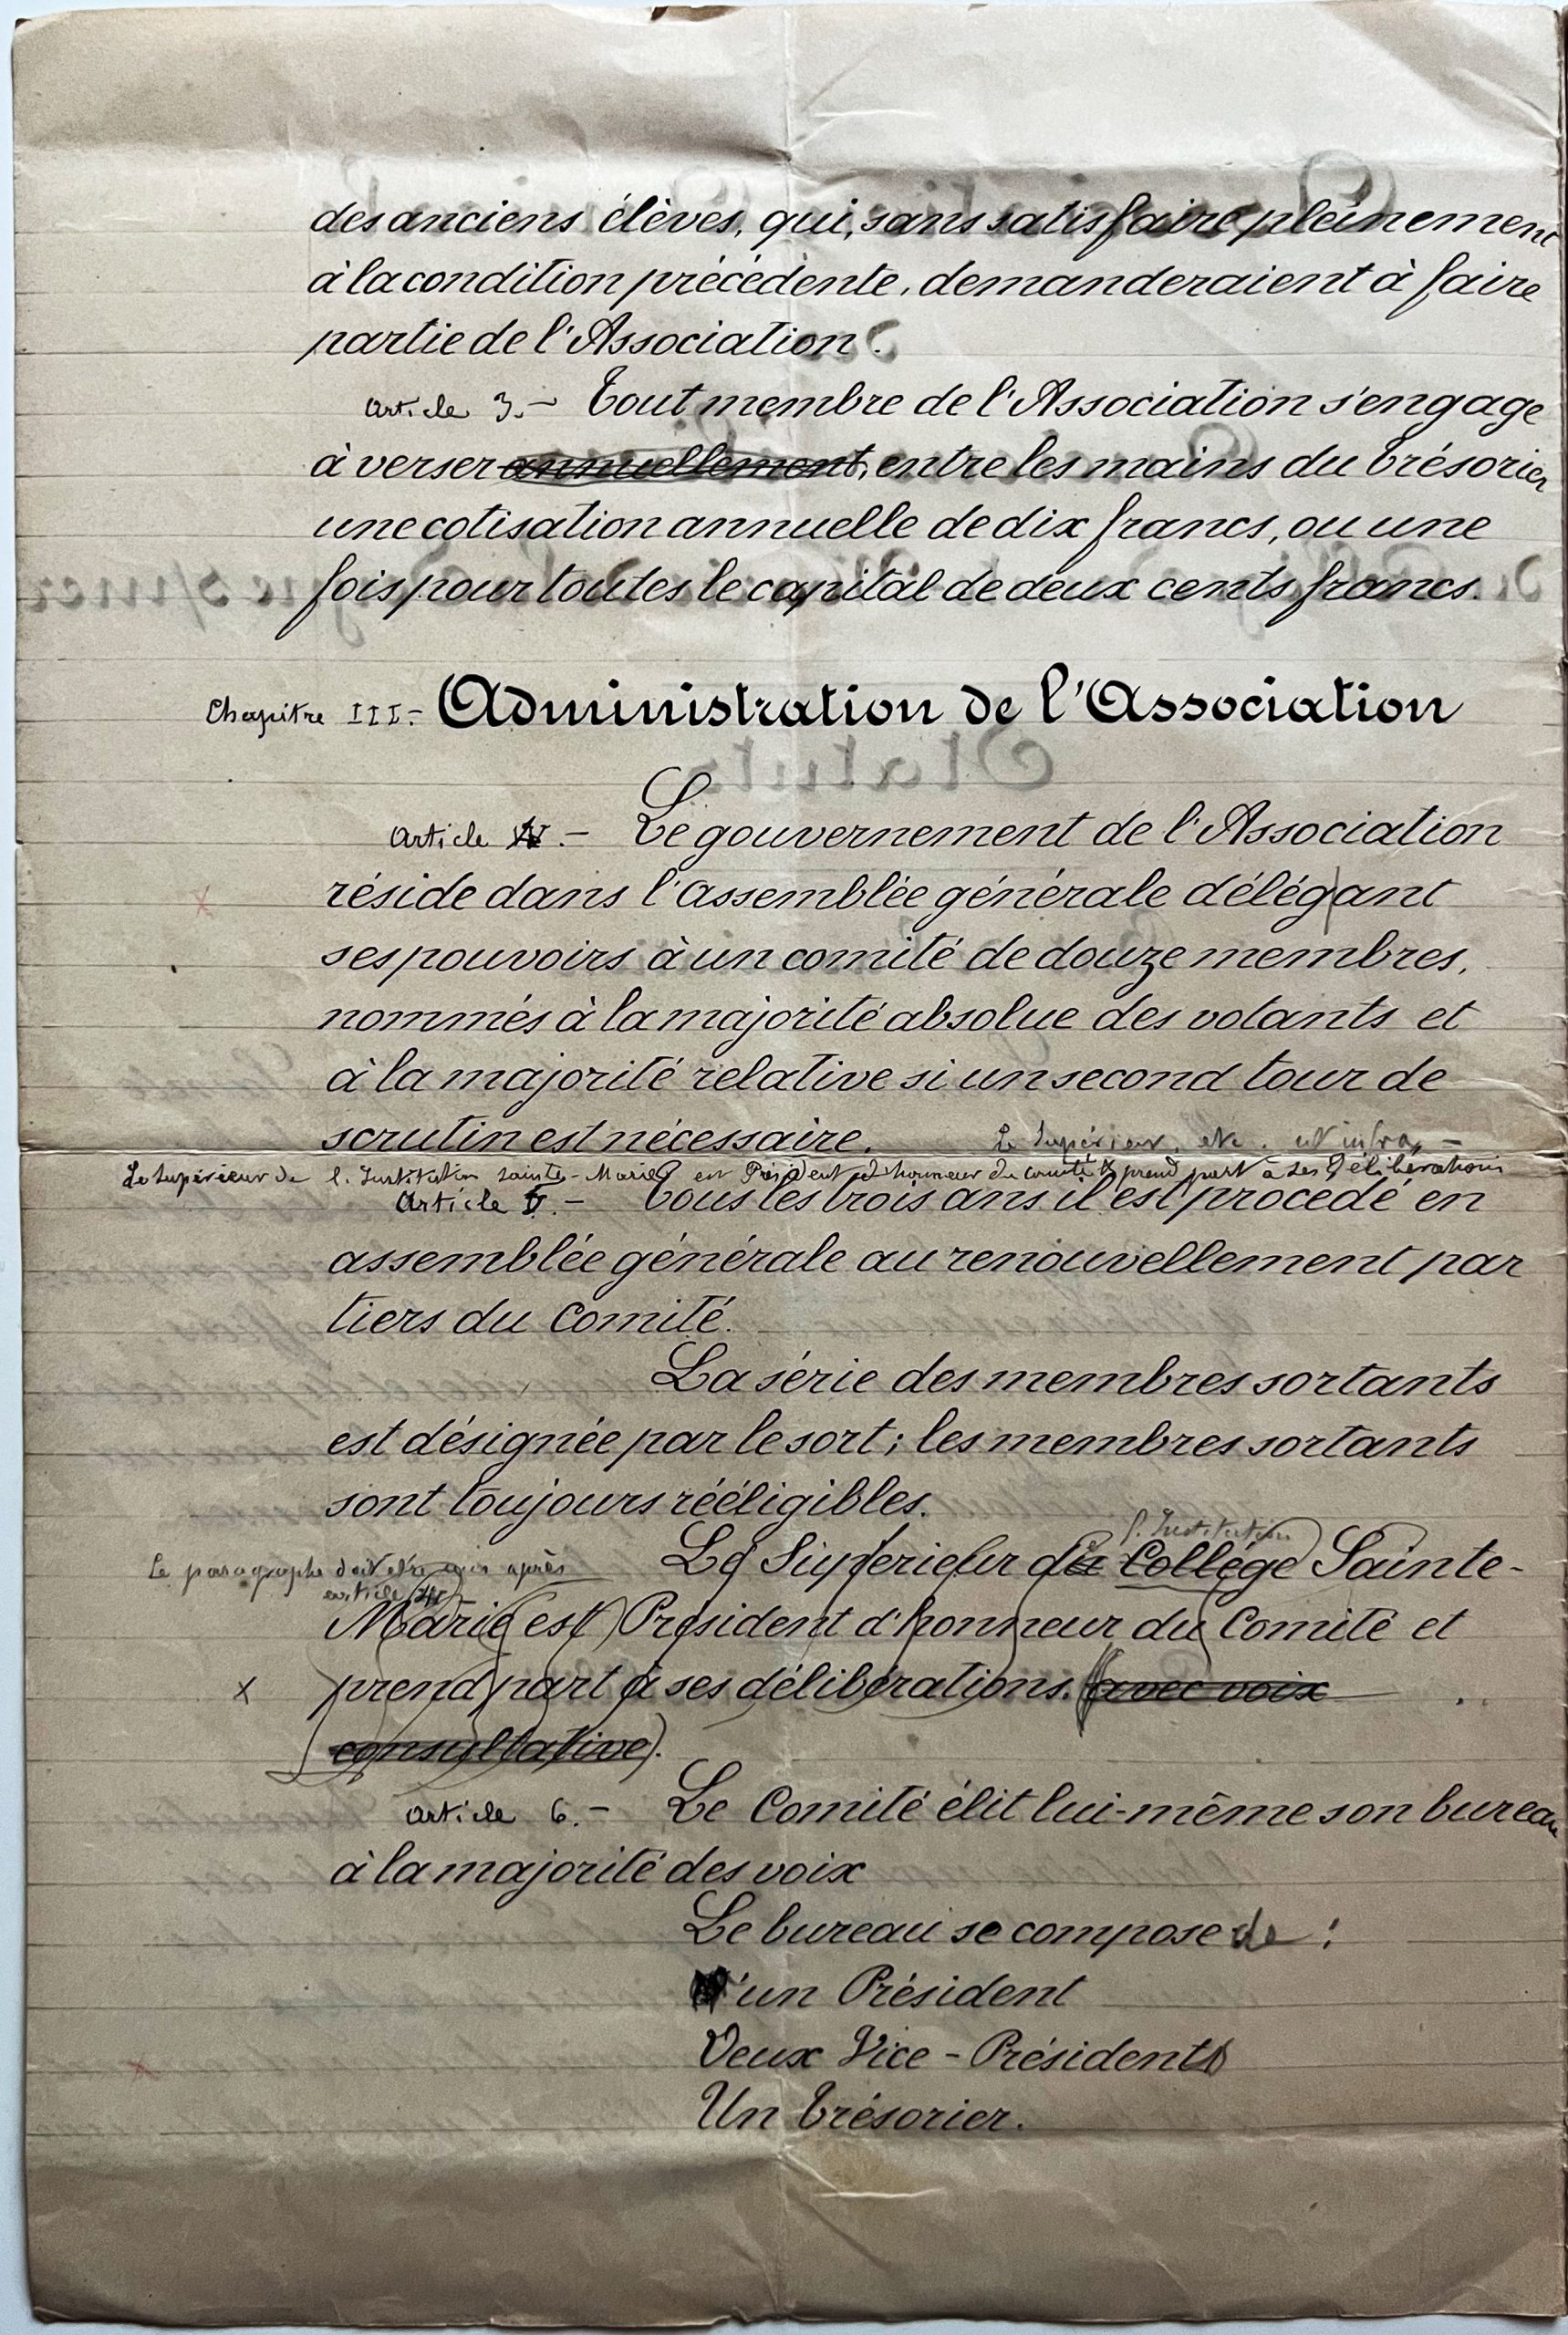 des anciens élèves, qui, sans satisfaire pleinement
à la condition précédente, demanderaient à faire
partie de l'Association.
Article 3.- Tout membre de l'Association s'engage
à verser annuellement, entre les mains du Trésorier
une cotisation annuelle de dix francs, ou une
fois pour toutes le capital de deux cents francs.
Chapitre III.- Administration de l'Association
Article .- Le gouvernement de l'Association
réside dans l'assemblée générale délégant
ses pouvoirs à un comité de douze membres,
nommés à la majorité absolue des votants et
à la majorité relative si un second tour de
scrutin est nécessaire. Le Supérieur, etc. ut infra -
Le Supérieur de l'Institution Sainte-Marie est Président d'honneur du Comité & prend part à ses délibérations
Article 5.- Tous les trois ans il est procédé en
assemblée générale au renouvellement par
tiers du Comité.
La série des membres sortants
est désignée par le sort ; les membres sortants
sont toujours rééligibles.
l'Institution
Le paragraphe doit être mis après Le Supérieur du Collège Sainte-
article
Marie est Président d'honneur du Comité et
x prend part à ses délibérations. (avec voix
consultative).
Article 6.- Le Comité élit lui-même son bureau
à la majorité des voix
Le bureau se compose de :
'un Président
Deux Vice-Présidents
Un Trésorier.